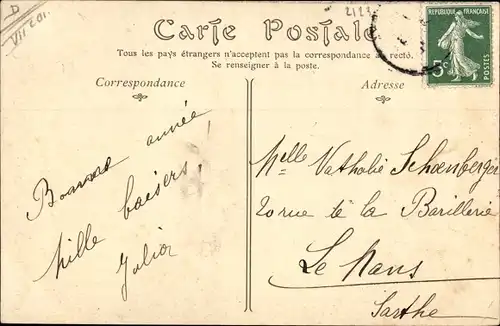 D
VII 201.
2123
Carte Postale
Tous les pays étrangers n'acceptent pas la correspondance au recto.
Se renseigner à la poste.
REPUBLIQUE FRANÇAISE
5c
POSTES
Correspondance
Adresse
Bonne année
mille baisers,
Julia
Melle Nathalie Schoenberger
20 rue de la Barillerie
Le Mans
Sarthe